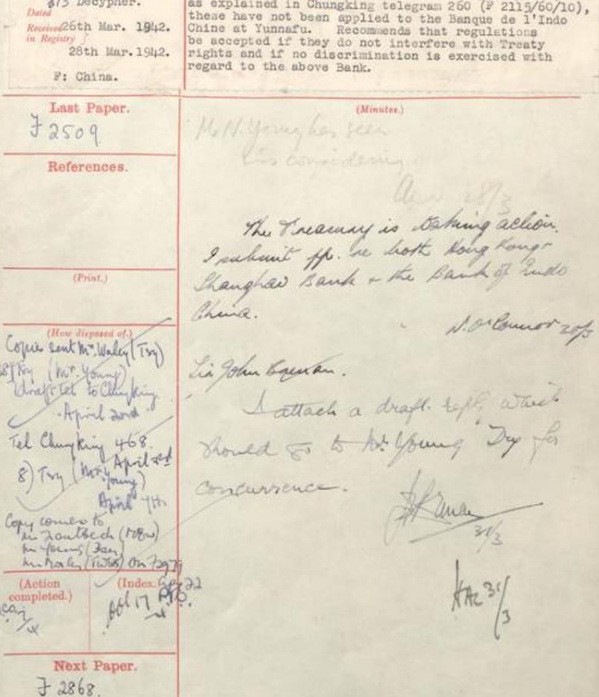 Decypher.
Dated
Received 26th Mar. 1942.
in Registry
28th Mar. 1942.
F: China.
as explained in Chungking telegram 260 (F 2115/60/10),
these have not been applied to the Banque de l'Indo
Chine at Yunnafu. Recommends that regulations
be accepted if they do not interfere with Treaty
rights and if no discrimination is exercised with
regard to the above Bank.
Last Paper.
F 2509
References.
(Print.)
(How disposed of.)
Copies sent Mr. Waley (Tsy)
Tsy (Mr. Young)
draft tel to Chungking
April 2nd
Tel Chungking 468.
April 2nd
8) Tsy (Mr. Young)
April 7th
Copy
(Action
completed.)
(Index.)
Next Paper.
F 2868.
(Minutes.)
Mr N. Young has seen
is considering
28/3
The Treasury is taking action.
I submit pp. re both Hong Kong &
Shanghai Bank & the Bank of Indo
China.
N. O'Connor 30/3
Sir John Brenan.
I attach a draft reply which
should go to Mr Young Tsy for
concurrence.
31/3
31/3